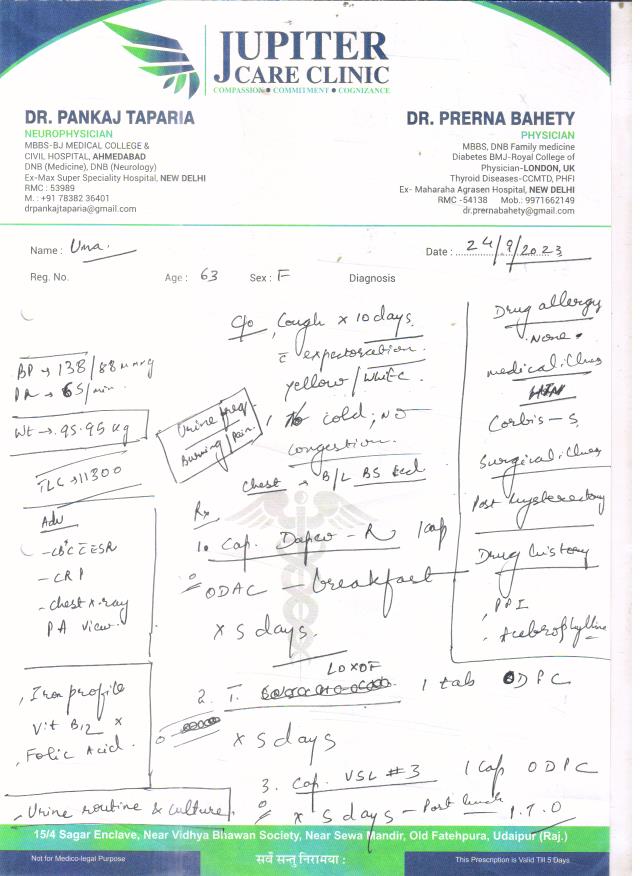 JUPITER
CARE CLINIC
COMPASSION • COMMITMENT • COGNIZANCE
DR. PANKAJ TAPARIA
NEUROPHYSICIAN
MBBS-BJ MEDICAL COLLEGE &
CIVIL HOSPITAL, AHMEDABAD
DNB (Medicine), DNB (Neurology)
Ex-Max Super Speciality Hospital, NEW DELHI
RMC : 53989
M. : +91 78382 36401
drpankajtaparia@gmail.com
DR. PRERNA BAHETY
PHYSICIAN
MBBS, DNB Family medicine
Diabetes BMJ-Royal College of
Physician-LONDON, UK
Thyroid Diseases-CCMTD, PHFI
Ex- Maharaha Agrasen Hospital, NEW DELHI
RMC -54138 Mob.: 9971662149
dr.prernabahety@gmail.com
Name : Uma.
Date : 24/9/2023
Reg. No. Age : 63 Sex : F Diagnosis
BP → 138/88 mmHg
PR → 65/min.
Wt → 95.95 kg
TLC → 11300
Adv
- CBC c ESR
- CRP
- chest x-ray
PA view.
, Iron profile
Vit B12 x
, Folic Acid.
, Urine routine & culture
c/o Cough x 10 days
c expectoration.
yellow / White.
Urine freq.
Burning / Pain.
, No cold; No
congestion.
chest → B/L BS
Rx
1. Cap. - R 1 cap
ODAC - breakfast
x 5 days.
LOXOF
2. T. 1 tab ODPC
x 5 days
3. Cap. VSL #3 1 Cap ODPC
x 5 days - Post lunch
P.T.O
Drug allergy
None.
medical illness
HTN
Corbis - 5
Surgical illness
Post hysterectomy
Drug history
, PPI
, Acebrophylline
15/4 Sagar Enclave, Near Vidhya Bhawan Society, Near Sewa Mandir, Old Fatehpura, Udaipur (Raj.)
Not for Medico-legal Purpose
सर्वे सन्तु निरामया :
This Prescription is Valid Till 5 Days